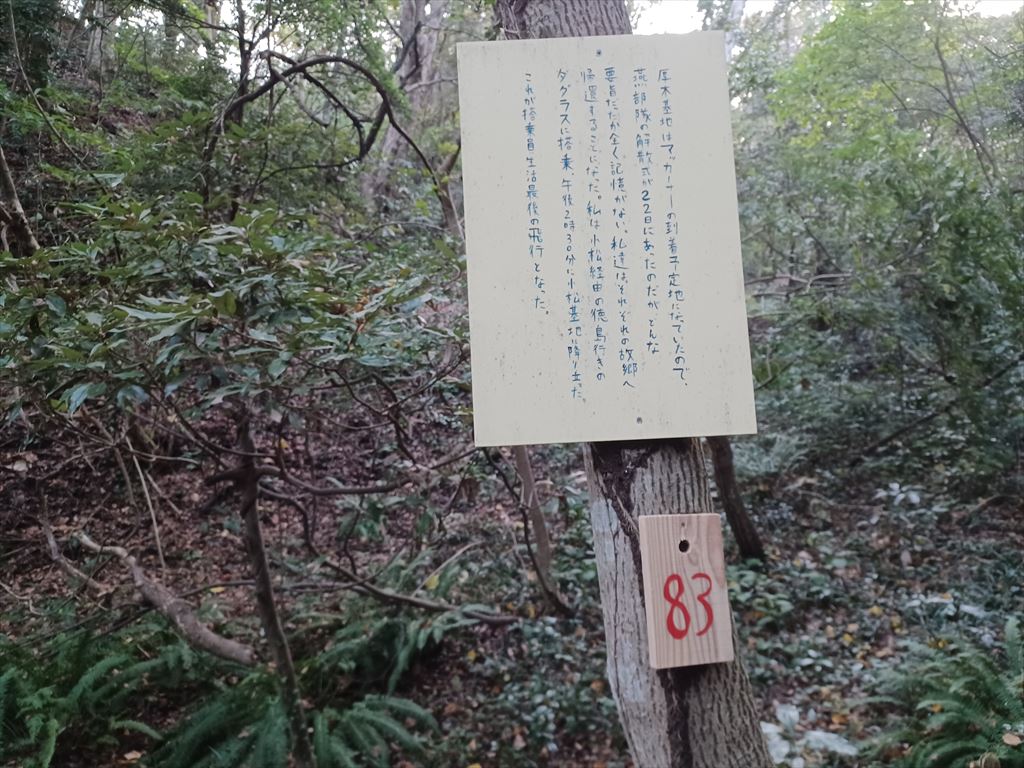 厚木基地はマッカーサーの到着予定地になっていたので、
燕部隊の解散式が22日にあったのだが、どんな
要旨だったか全く記憶がない。私達はそれぞれの故郷へ
帰還することになった。私は小松経由の徳島行きの
ダグラスに搭乗、午後2時30分に小松基地に降り立った。
これが搭乗員生活最後の飛行となった。
83